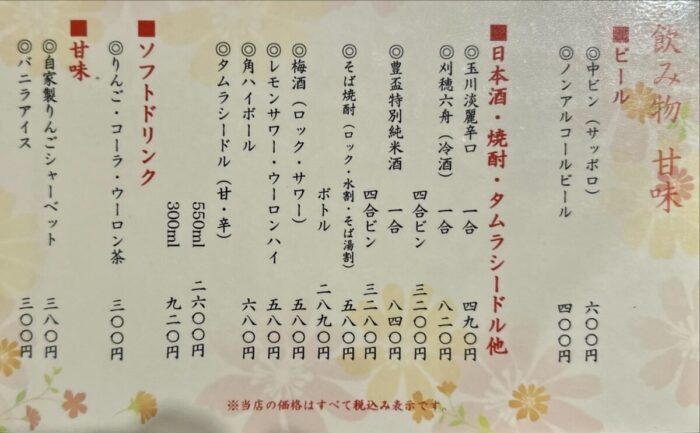 飲み物 甘味
■ビール
◎中ビン（サッポロ） 六〇〇円
◎ノンアルコールビール 四〇〇円
■日本酒・焼酎・タムラシードル他
◎玉川淡麗辛口 一合 四九〇円
◎刈穂六舟（冷酒） 一合 八二〇円
四合ビン 三二〇〇円
◎豊盃特別純米酒 一合 八四〇円
四合ビン 三二八〇円
◎そば焼酎（ロック・水割・そば湯割） 五八〇円
ボトル 二八九〇円
◎梅酒（ロック・サワー） 五八〇円
◎レモンサワー・ウーロンハイ 五八〇円
◎角ハイボール 六八〇円
◎タムラシードル（甘・辛）
550ml 二六〇〇円
300ml 九二〇円
■ソフトドリンク
◎りんご・コーラ・ウーロン茶 三〇〇円
■甘味
◎自家製りんごシャーベット 三八〇円
◎バニラアイス 三〇〇円
※当店の価格はすべて税込み表示です。